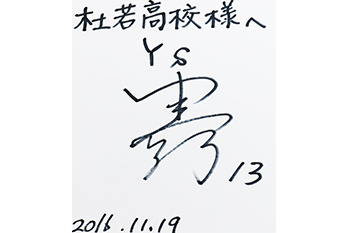 杜若高校様へ
YS
13
2016.11.19